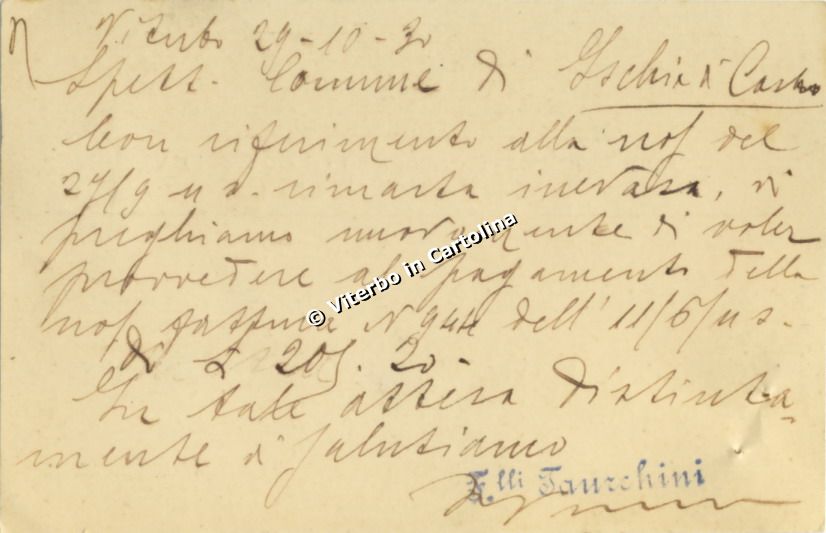 Viterbo 29-10-30
Spett. Comune di Ischia di Castro
Con riferimento alla nos/ del
27/9 u s. rimasta inevasa, vi
preghiamo nuovamente di voler
provvedere al pagamento della
nos/ fattura N 944 dell' 11/6/u s.
di L 205. 20
In tale attesa distinta-
mente vi salutiamo
F.lli Taurchini
© Viterbo in Cartolina